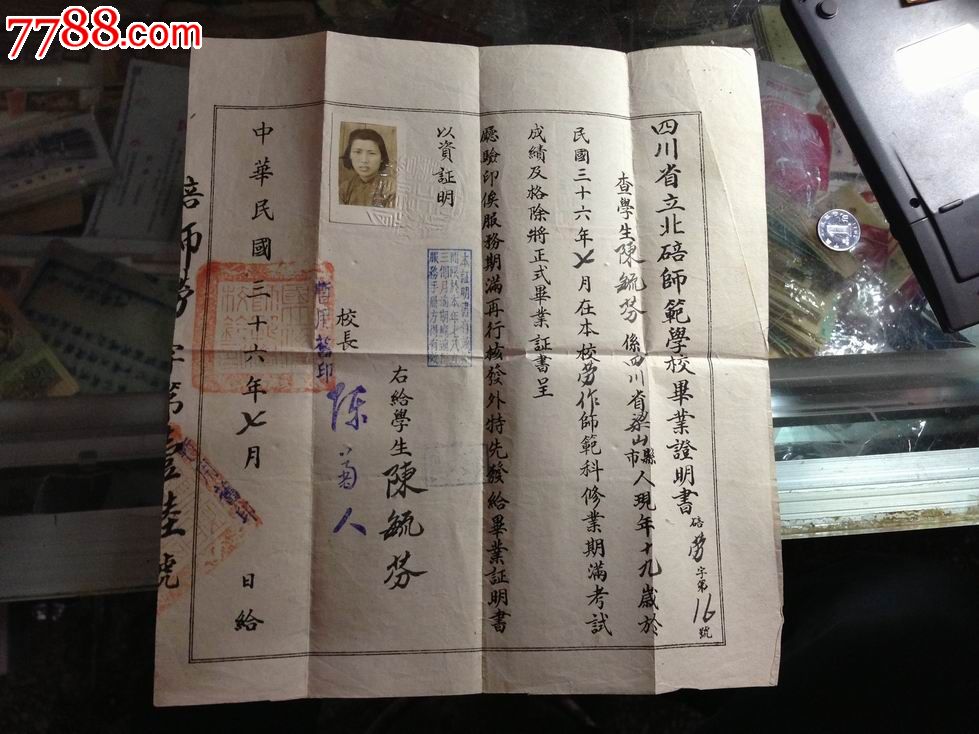 7788.com
四川省立北碚師範學校畢業證明書
碚勞字第16號
查學生陳毓芬係四川省梁山縣市人現年十九歲於
民國三十六年七月在本校勞作師範科修業期滿考試
成績及格除將正式畢業証書呈
廳驗印俟服務期滿再行核發外特先發給畢業証明書
以資証明
右給學生陳毓芬
校長 陳菊人
暫用舊印
中華民國三十六年七月 日給
碚師勞字第壹陸號